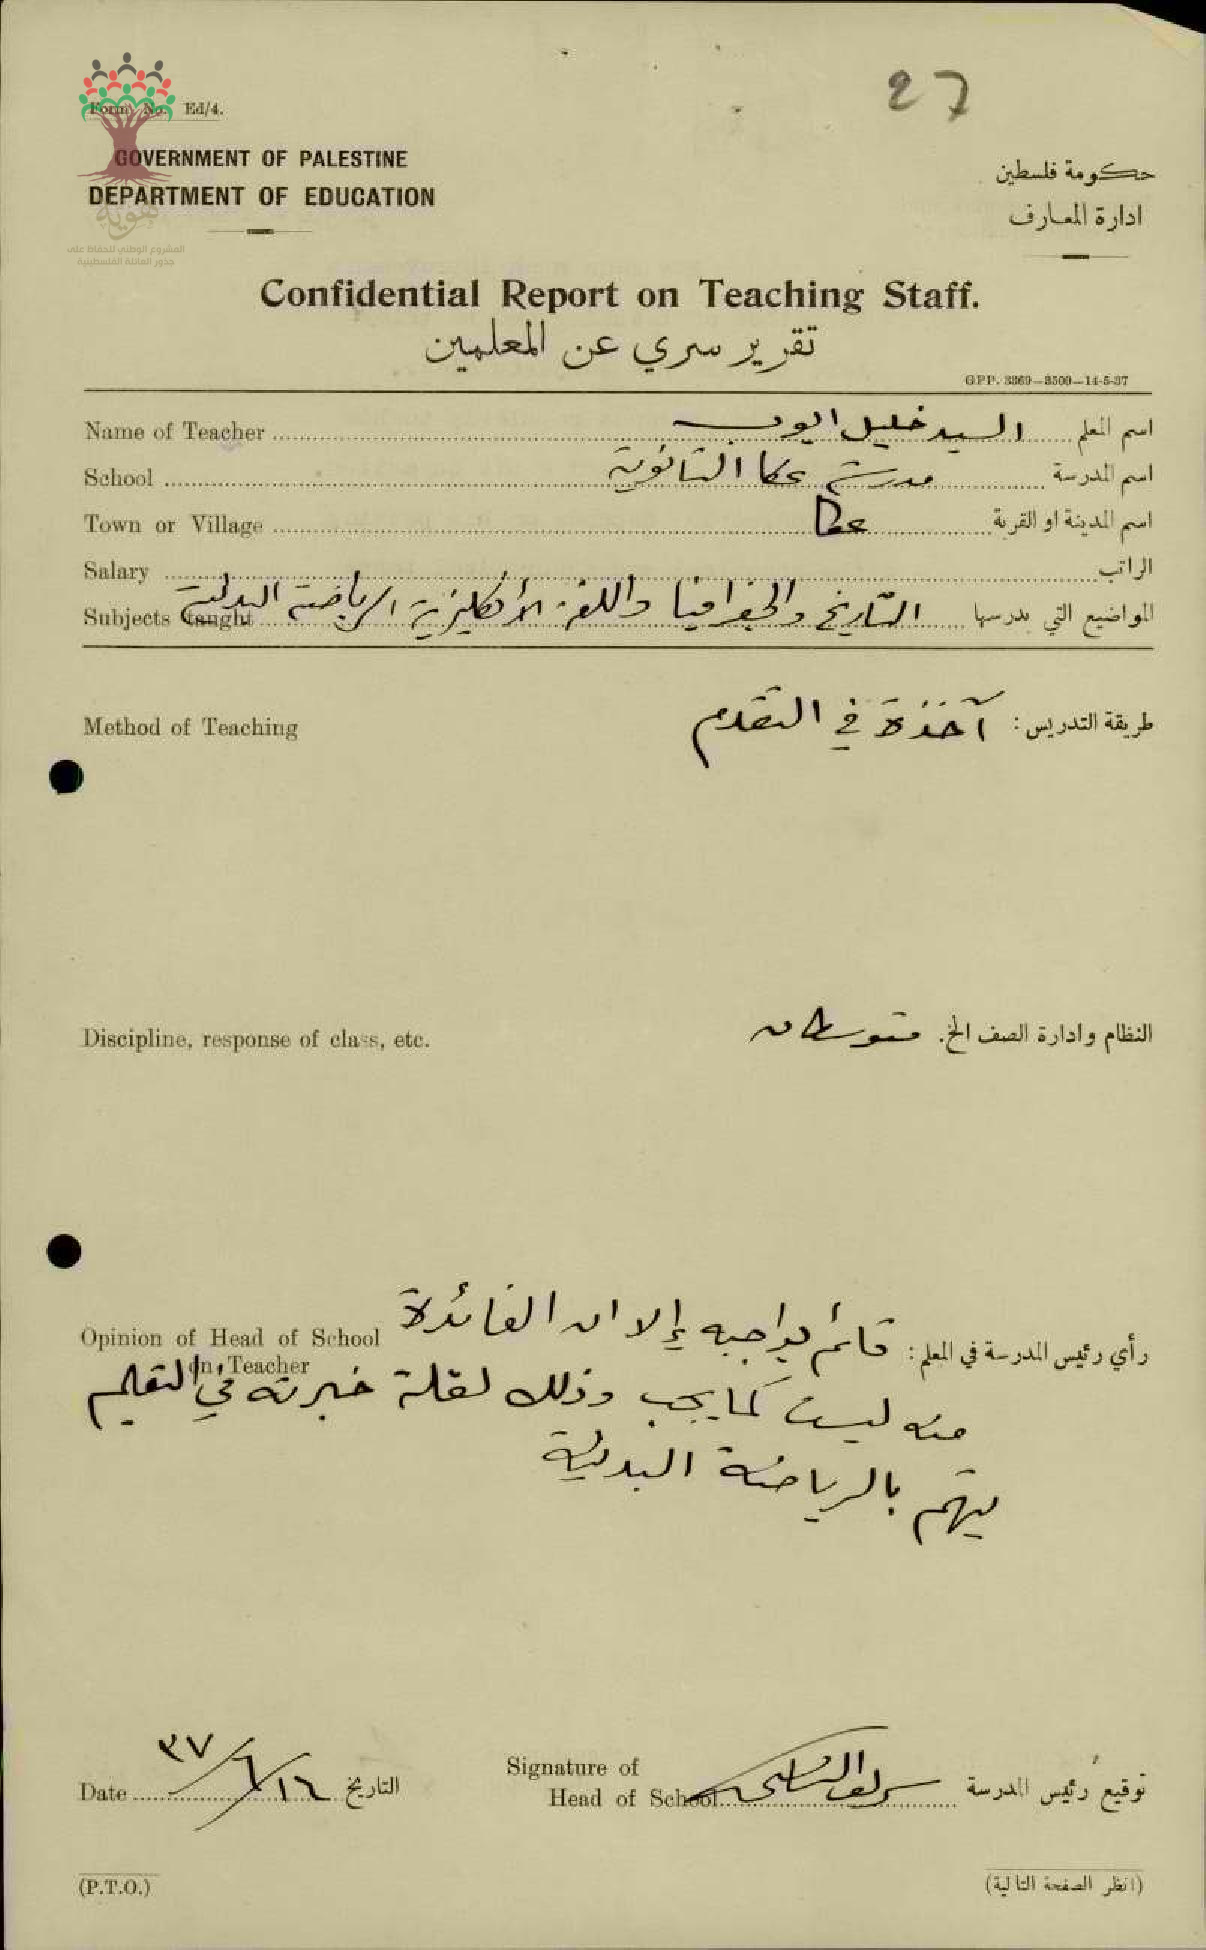 27
Form No. Ed/4.
GOVERNMENT OF PALESTINE
DEPARTMENT OF EDUCATION
حكومة فلسطين
ادارة المعارف
هوية
المشروع الوطني للحفاظ على
جذور العائلة الفلسطينية
Confidential Report on Teaching Staff.
تقرير سري عن المعلمين
GPP. 3369—3500—14-5-37
Name of Teacher السيد خليل ايوب اسم المعلم
School مدرسة عكا الثانوية اسم المدرسة
Town or Village عكا اسم المدينة او القرية
Salary الراتب
Subjects taught التاريخ والجغرافيا واللغة الأنكليزية الرياضة البدنية المواضيع التي يدرسها
Method of Teaching طريقة التدريس : آخذة في التقدم
Discipline, response of class, etc. النظام وادارة الصف الخ. متوسطان
Opinion of Head of School رأي رئيس المدرسة في المعلم : قائم بواجبه إلا ان الفائدة
on Teacher
منه ليست كما يجب وذلك لقلة خبرته في التعليم
يهتم بالرياضة البدنية
Signature of
Head of School توقيع رئيس المدرسة
Date ١٦/٦/٣٧ التاريخ
(P.T.O.)
(انظر الصفحة التالية)